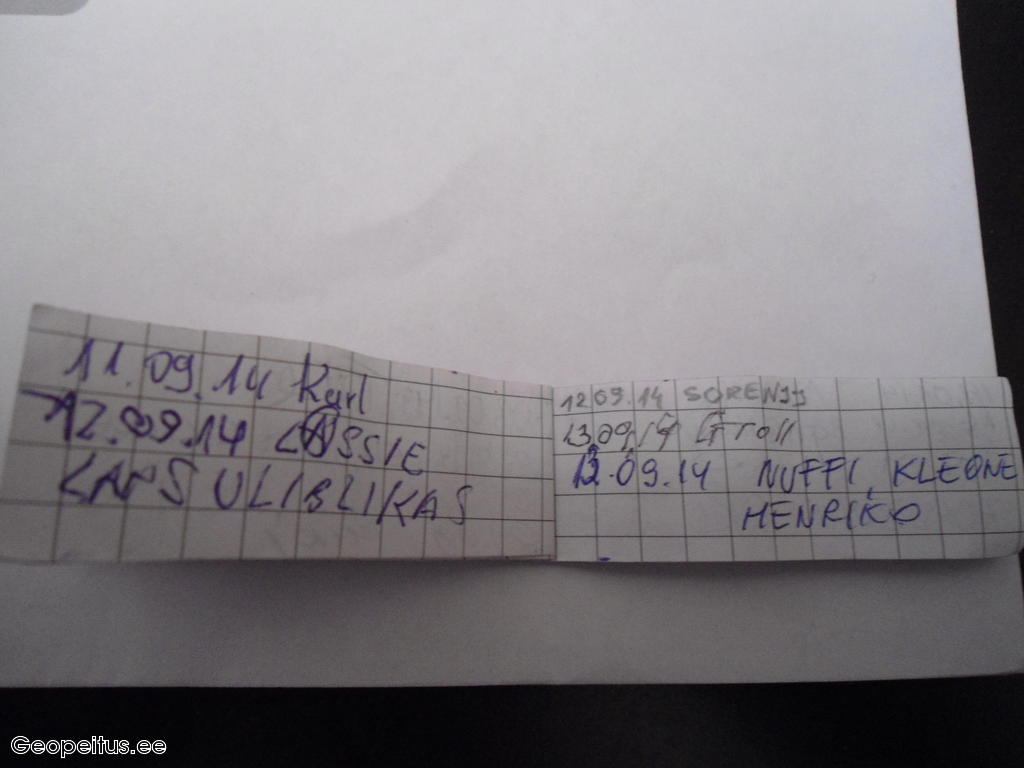 11.09.14 Karl
12.09.14 LASSIE
LAPS ULIBLIKAS
12 09.14 SORENJJ
13.09.14 GTroll
13.09.14 NUFFI, KLEONE
HENRIKO
Geopeitus.ee